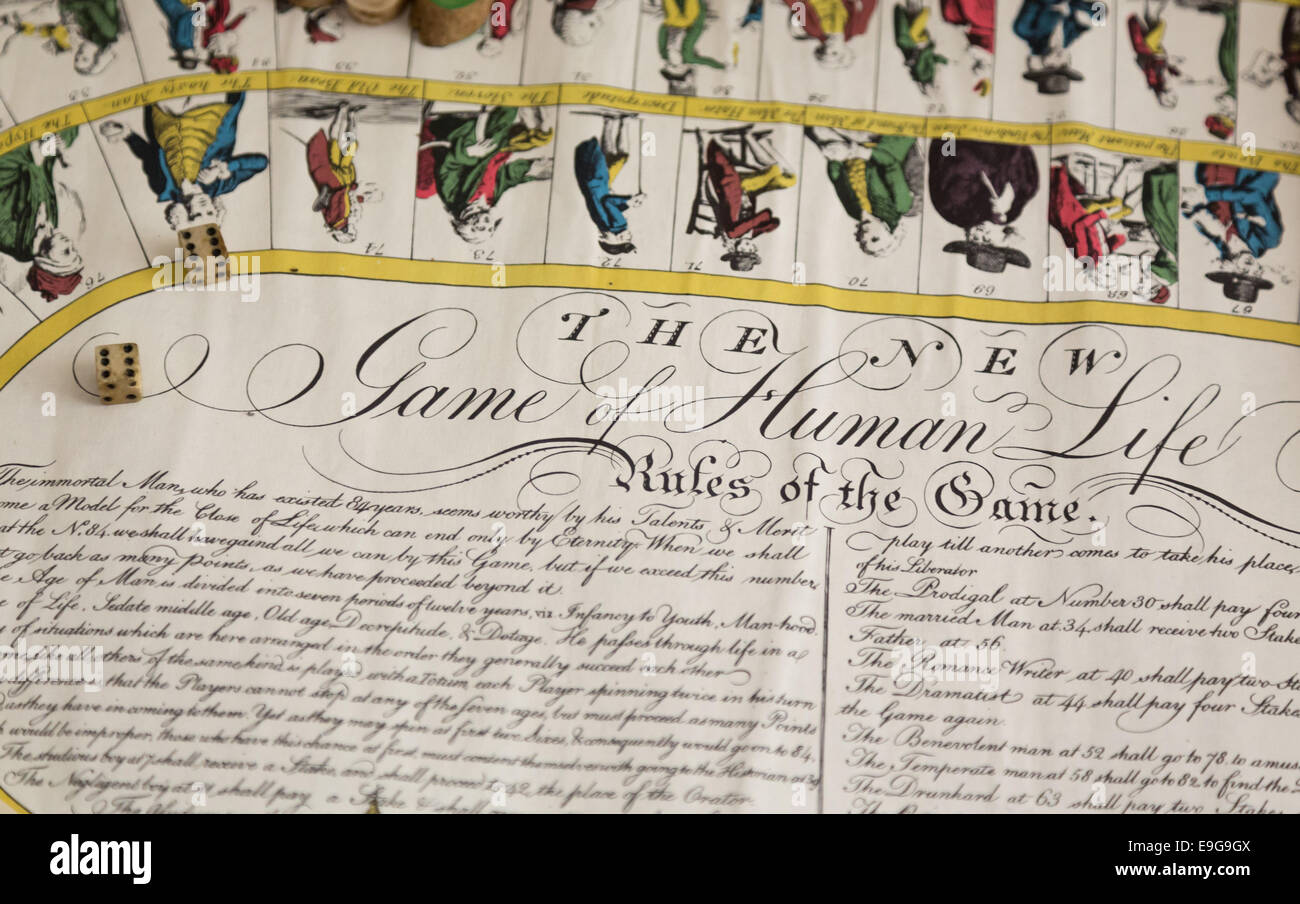 The Hypo
The hasty Man.
The Old Beau.
The Sloven.
Decrepitude
The Man Hater
The patient Man
The Brute
76
74
73
72
71
70
69
68
67
THE NEW
Game of Human Life
Rules of the Game.
The immortal Man, who has existed 84 years, seems worthy by his Talents & Merit
ome a Model for the Close of Life, which can end only by Eternity. When we shall
at the No. 84. we shall have gaind all we can by this Game, but if we exceed this number,
t go back as many Points, as we have proceeded beyond it.
e Age of Man is divided into seven periods of twelve years, viz. Infancy to Youth, Manhood.
e of Life, Sedate middle age, Old age, Decrepitude, & Dotage. He passes through life in a
y of situations which are here arranged in the order they generally succeed each other.
all others of the same kind is played with a Totum, each Player spinning twice in his turn
difference that the Players cannot stop at any of the seven ages, but must proceed as many Points
as they have in coming to them. Yet as they may spin at first two Sixes, & consequently would go on to 84,
h would be improper, those who have this chance at first must content themselves with going to the Historian at 39
The studious boy at 7 shall receive a Stake, and shall proceed to 42, the place of the Orator.
The Negligent boy at shall pay a Stake & shall
play till another comes to take his place,
of his Liberator
The Prodigal at Number 30 shall pay four
The married Man at 34 shall receive two Stake
Father at 56.
The Romance Writer at 40 shall pay two Sta
The Dramatist at 44 shall pay four Stake
the Game again.
The Benevolent man at 52 shall go to 78. to amus
The Temperate man at 58 shall go to 82 to find the
The Drunkard at 63 shall pay two Stakes
alamy
alamy
Image ID: E9G9GX
www.alamy.com